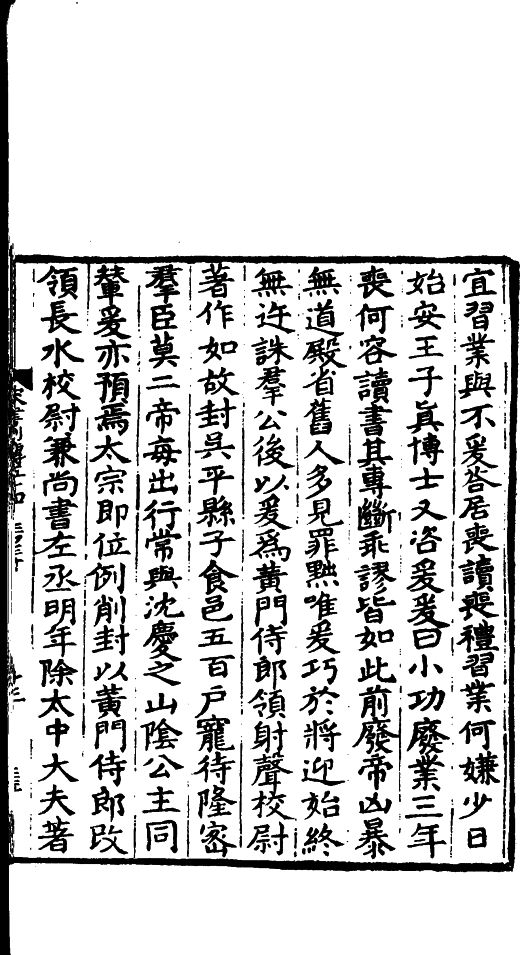 宜習業與不爰荅居喪讀喪禮習業何嫌少日
始安王子眞博士又咨爰爰曰小功廢業三年
喪何容讀書其專斷乖謬皆如此前廢帝凶暴
無道殿省舊人多見罪黜唯爰巧於將迎始終
無迕誅羣公後以爰爲黃門侍郎領射聲校尉
著作如故封吳平縣子食邑五百戶寵待隆密
羣臣莫二帝每出行常與沈慶之山陰公主同
輦爰亦預焉太宗即位例削封以黃門侍郎改
領長水校尉兼尚書左丞明年除太中大夫著